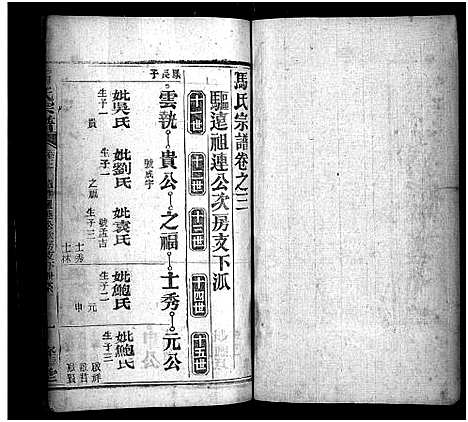 馬氏宗譜卷之三
驅遠祖連公次房支下派
十一世
十二世
十三世
十四世
十五世
鳳長子
雲執
貴公
號威宇
之福
士秀
元公
妣吳氏
生子一
貴
妣劉氏
生子一
之福
妣袁氏
號孟吉
生子三
士秀
士林
妣鮑氏
生子二
元
申
妣鮑氏
生子三
啟祥
啟賢